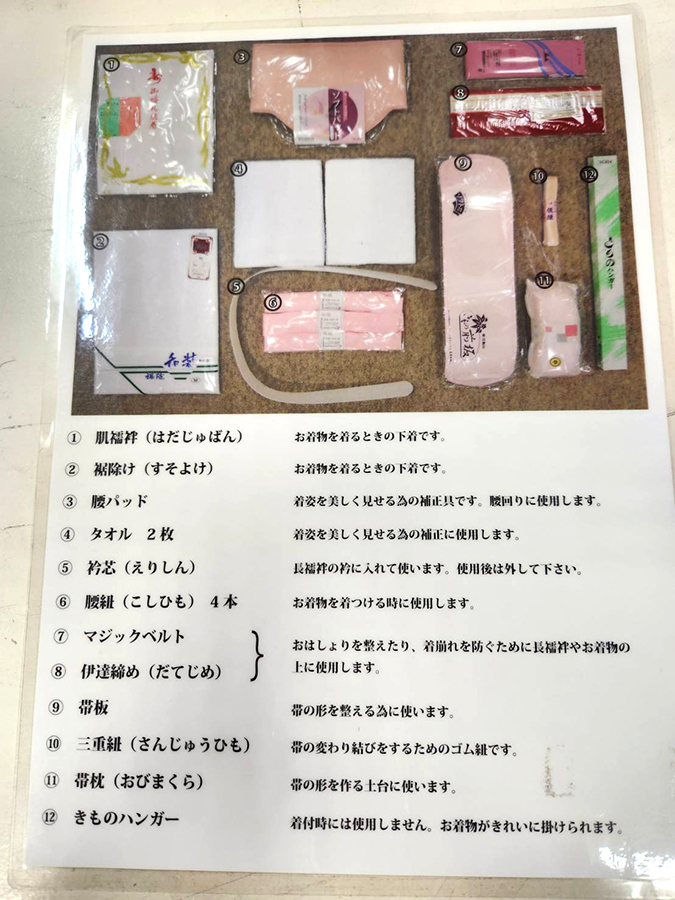 ① ③ ⑦
肌襦袢
ソフトパット
⑧
④ ⑨ ⑩ ⑫
②
きものハンガー
⑤ ⑥ ⑪
裾除
① 肌襦袢（はだじゅばん） お着物を着るときの下着です。
② 裾除け（すそよけ） お着物を着るときの下着です。
③ 腰パッド 着姿を美しく見せる為の補正具です。腰回りに使用します。
④ タオル　２枚 着姿を美しく見せる為の補正に使用します。
⑤ 衿芯（えりしん） 長襦袢の衿に入れて使います。使用後は外して下さい。
⑥ 腰紐（こしひも）　４本 お着物を着つける時に使用します。
⑦ マジックベルト
おはしょりを整えたり、着崩れを防ぐために長襦袢やお着物の
⑧ 伊達締め（だてじめ） 上に使用します。
⑨ 帯板 帯の形を整える為に使います。
⑩ 三重紐（さんじゅうひも） 帯の変わり結びをするためのゴム紐です。
⑪ 帯枕（おびまくら） 帯の形を作る土台に使います。
⑫ きものハンガー 着付時には使用しません。お着物がきれいに掛けられます。